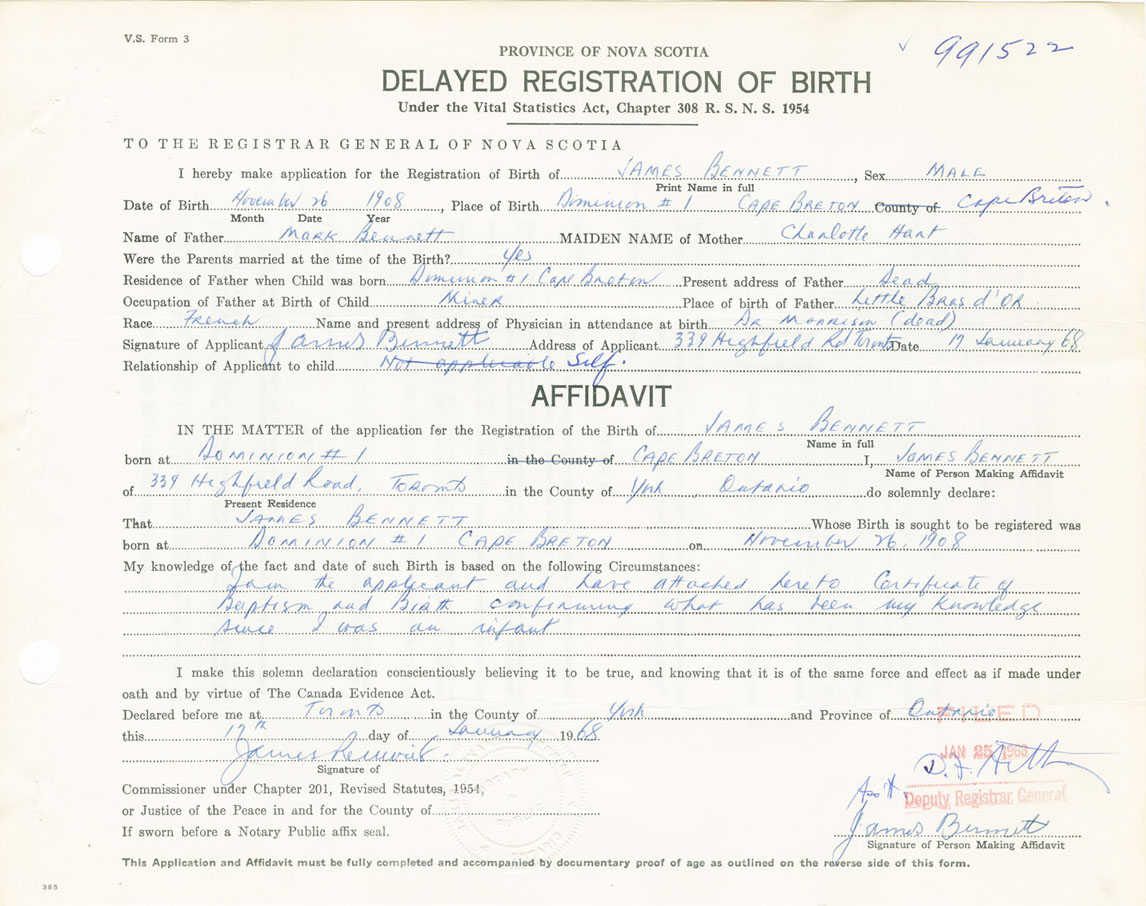 V.S. Form 3
✓ 991522
PROVINCE OF NOVA SCOTIA
DELAYED REGISTRATION OF BIRTH
Under the Vital Statistics Act, Chapter 308 R. S. N. S. 1954
TO THE REGISTRAR GENERAL OF NOVA SCOTIA
I hereby make application for the Registration of Birth of JAMES BENNETT, Sex MALE
Print Name in full
Date of Birth November 26 1908, Place of Birth Dominion # 1 CAPE BRETON County of Cape Breton.
Month Date Year
Name of Father Mark Bennett MAIDEN NAME of Mother Charlotte Hart
Were the Parents married at the time of the Birth? Yes
Residence of Father when Child was born Dominion #1 Cape Breton Present address of Father Dead
Occupation of Father at Birth of Child Miner Place of birth of Father Little Bras d'OR
Race French Name and present address of Physician in attendance at birth DR MORRISON (dead)
Signature of Applicant James Bennett Address of Applicant 339 Highfield Rd Toronto Date 17 January 68
Relationship of Applicant to child Not applicable Self.
AFFIDAVIT
IN THE MATTER of the application for the Registration of the Birth of JAMES BENNETT
Name in full
born at DOMINION # 1 in the County of CAPE BRETON I, JAMES BENNETT
Name of Person Making Affidavit
of 339 Highfield Road, TORONTO in the County of York, Ontario do solemnly declare:
Present Residence
That JAMES BENNETT Whose Birth is sought to be registered was
born at DOMINION # 1 CAPE BRETON on November 26, 1908
My knowledge of the fact and date of such Birth is based on the following Circumstances:
I am the applicant and have attached hereto Certificate of
Baptism and Birth confirming what has been my knowledge
since I was an infant
I make this solemn declaration conscientiously believing it to be true, and knowing that it is of the same force and effect as if made under
oath and by virtue of The Canada Evidence Act.
Declared before me at Toronto in the County of York and Province of Ontario
FILED
this 17th day of January 1968
JAN 25 1968
James
Signature of
Commissioner under Chapter 201, Revised Statutes, 1954,
Deputy Registrar General
or Justice of the Peace in and for the County of
James Bennett
If sworn before a Notary Public affix seal.
Signature of Person Making Affidavit
This Application and Affidavit must be fully completed and accompanied by documentary proof of age as outlined on the reverse side of this form.
385